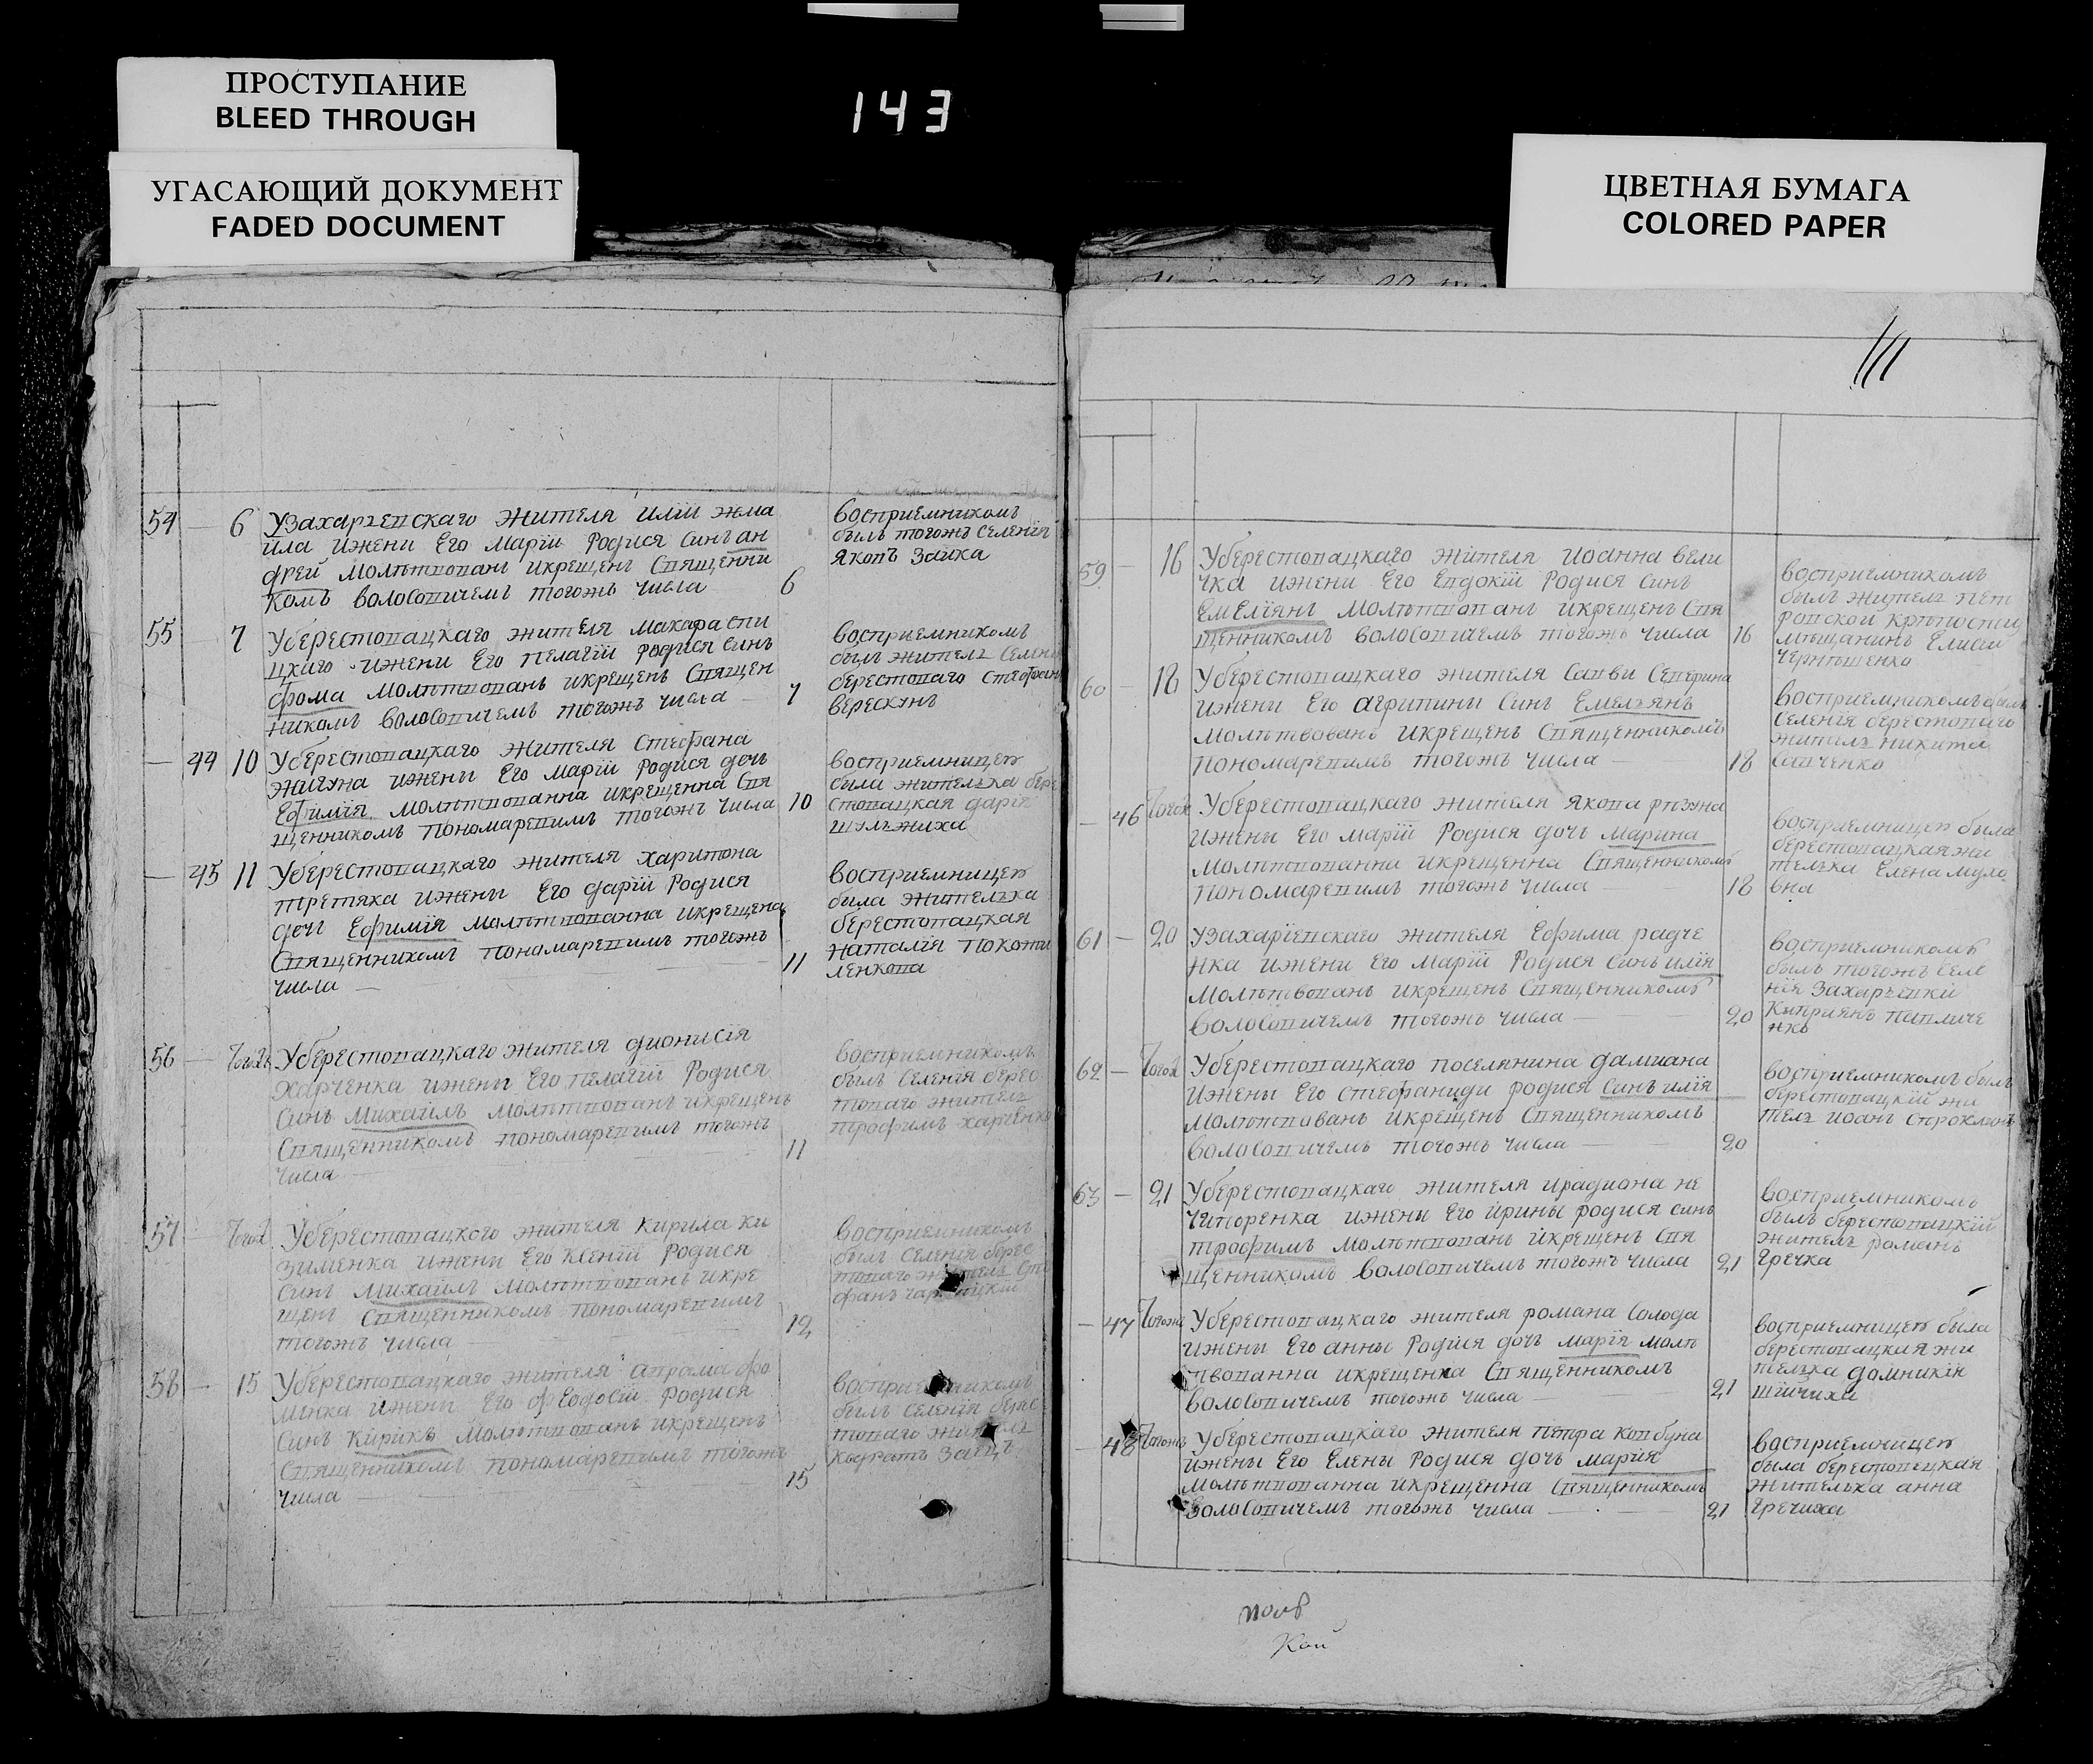 ПРОСТУПАНИЕ
BLEED THROUGH
УГАСАЮЩИЙ ДОКУМЕНТ
FADED DOCUMENT
143
ЦВЕТНАЯ БУМАГА
COLORED PAPER
111
54 — 6 Узахаръевскаго жителя илїи жма
ила ижени Его Марїи Родися Синъ ан
дрей Молитвованъ икрещенъ Священни
комъ волосовичемъ тогожъ числа 6
восприемникомъ
былъ тогожъ Селенїя
Яковъ Заика
55 — 7 Уберестовацкаго жителя макара спи
цкаго ижени Его пелагїи родися синъ
фома Молитвованъ икрещенъ Священ
никомъ волосовичемъ тогожъ числа 7
восприемникомъ
былъ жителъ Селенї
берестоваго стефан
верескунъ
— 44 10 Уберестовацкаго жителя Стефана
жигуна ижены Его Марїи Родися дочъ
Ефимїя Молитвованна икрещенна Свя
щенникомъ пономаревимъ тогожъ числа 10
восприемницею
были жителька бере
стовацкая дарїя
шульжиха
— 45 11 Уберестовацкаго жителя харитона
третяка ижены Его дарїи Родися
дочъ Ефимїя Молитвованна икрещена
Священникомъ пономаревимъ тогожъ
числа — 11
восприемницею
была жителька
берестовацкая
наталїя покоти
ленкова
56 — тогожъ Уберестовацкаго жителя дионисїя
Харченка ижены Его пелагїи Родися
Синъ Михаилъ Молитвованъ икрещенъ
Священникомъ пономаревимъ тогожъ
числа — 11
восприемникомъ
былъ Селенїя берес
товаго жителъ
трофимъ харченко
57 — тогож Уберестовацкого жителя Кирила Ки
зименка ижени Его Ксенїи Родися
Синъ Михаилъ Молитвованъ икре
щенъ Священникомъ пономаревимъ
тогожъ числа — 12
восприемникомъ
былъ Селенїя берес
товаго жителъ Сте
фанъ
58 — 15 Уберестовацкаго жителя аврама фо
менка ижени Его феодосїи Родися
Синъ Кирикъ Молитвованъ икрещенъ
Священникомъ пономаревимъ тогожъ
числа — 15
восприемникомъ
былъ Селенїя берес
товаго жителъ
Кодратъ Заецъ
59 — 16 Уберестовацкаго жителя Иоанна вели
чка ижени Его Евдокїи Родися Синъ
Емелїянъ Молитвованъ икрещенъ Свя
щенникомъ волосовичемъ тогожъ числа 16
восприемникомъ
былъ жителъ пет
ровской крѣпости
мѣщанинъ Елисей
Чернышенко
60 — 18 Уберестовацкаго жителя Савви Северина
ижени Его агрипини Синъ Емелъянъ
Молитвованъ икрещенъ Священникомъ
пономаревимъ тогожъ числа — 18
восприемникомъ былъ
Селенїя берестоваго
жителъ никита
Савченко
— 46 тогож Уберестовацкаго жителя Якова
ижены Его марїи Родися дочъ марина
Молитвованна икрещенна Священникомъ
пономаревимъ тогожъ числа — 18
восприемницею была
берестовацкая жи
телька Елена муло
вна
61 — 20 Узахарїевскаго жителя Ефима радче
нка ижени Его Марїи Родися Синъ илїя
Молитвованъ икрещенъ Священникомъ
волосовичемъ тогожъ числа — 20
восприемникомъ
былъ тогожъ Селе
нїя Захаръевки
Киприянъ павличе
нко
62 — тогож Уберестовацкаго поселянина дамиана
ижены Его стефаниди родися синъ илїя
Молитвованъ икрещенъ Священникомъ
волосовичемъ тогожъ числа — 20
восприемникомъ былъ
берестовацкїй жи
телъ иоанъ
63 — 21 Уберестовацкаго жителя ирадиона не
чипоренка ижены Его ирины родися синъ
трофимъ Молитвованъ икрещенъ Свя
щенникомъ волосовичемъ тогожъ числа 21
восприемникомъ
былъ берестовацкїй
жителъ романъ
гречка
— 47 тогожъ Уберестовацкаго жителя романа Солода
ижены Его анны Родися дочъ марїя моли
твованна икрещенна Священникомъ
волосовичемъ тогожъ числа — 21
восприемницею была
берестовацкая жи
телька домникїя
шїичиха
— 48 тогожъ Уберестовацкаго жителя петра ковбуна
ижены Его Елены Родися дочъ марїя
Молитвованна икрещенна Священникомъ
волосовичемъ тогожъ числа — 21
восприемницею
была берестовецкая
жителька анна
гречиха